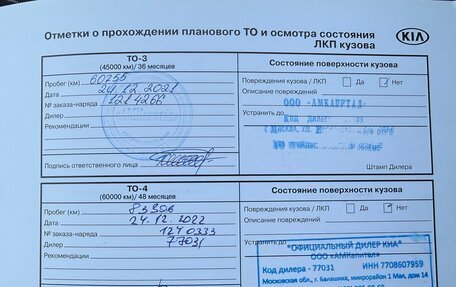 Отметки о прохождении планового ТО и осмотра состояния
ЛКП кузова
KIA
ТО-3
(45000 км) / 36 месяцев
Состояние поверхности кузова
Пробег (км) 60255
Дата 24.12.2021
№ заказа-наряда 1214266
Дилер
Рекомендации
Подпись ответственного лица
Повреждения кузова / ЛКП Да Нет
Описание повреждений
ООО "АМКАПИТАЛ"
Устранить до
КОД ДИЛЕР
Штамп Дилера
ТО-4
(60000 км) / 48 месяцев
Состояние поверхности кузова
Пробег (км) 83306
Дата 24.12.2022
№ заказа-наряда 1240333
Дилер 77031
Рекомендации
Повреждения кузова / ЛКП Да Нет
Описание повреждений
Устранить до
"ОФИЦИАЛЬНЫЙ ДИЛЕР КИА"
ООО «АМКапитал»
Код дилера - 77031 ИНН 7708607959
Московская обл., г. Балашиха, микрорайон 1 Мая, дом 14